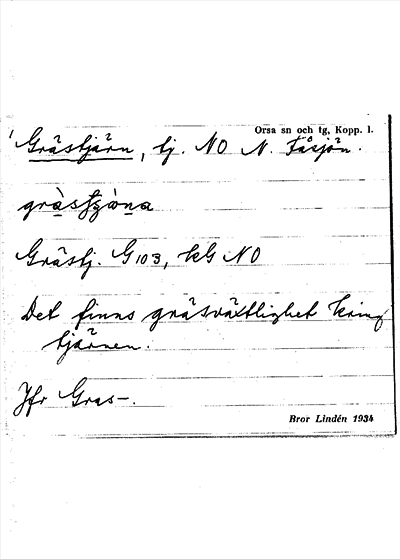 Orsa sn och tg, Kopp. l.
Grästjärn, tj. NO N. Fåsjön.
Grästj. G103, kG NO
Det finns gräsväxtlighet kring
tjärnen.
Jfr Gras-.
Bror Lindén 1934